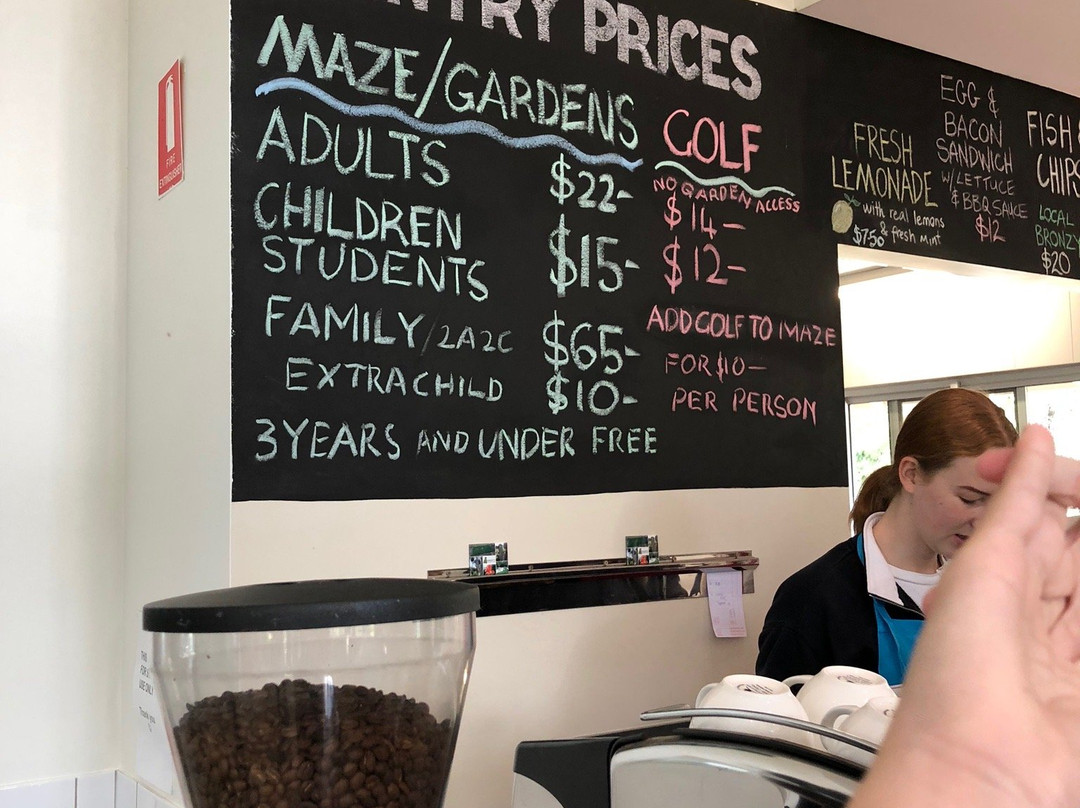 PRICES
MAZE/GARDENS
ADULTS $22-
CHILDREN
STUDENTS $15-
FAMILY/2A2C $65-
EXTRA CHILD $10-
3 YEARS AND UNDER FREE
GOLF
NO GARDEN ACCESS
$14-
$12-
ADD GOLF TO MAZE
FOR $10-
PER PERSON
FRESH
LEMONADE
with real lemons
& fresh mint
$7.50
EGG &
BACON
SANDWICH
W/LETTUCE
& BBQ SAUCE
$12
FISH
CHIPS
LOCAL
$20
FIRE
EXTINGUISHER
THIS
FOR A
USE ONLY
Thank you